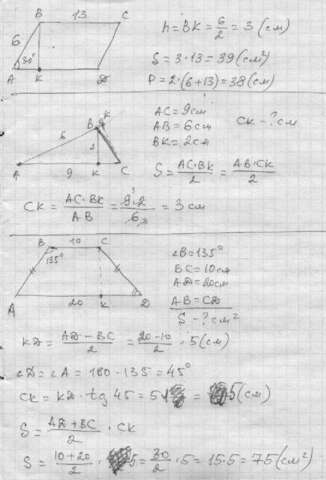 B 13 C
6
30°
A K D
h = BK = 6/2 = 3 (см)
S = 3·13 = 39 (см²)
P = 2·(6+13) = 38 (см)
B K
6
2
A 9 K C
AC = 9см
AB = 6см
BK = 2см
CK - ? см
S = AC·BK/2 = AB·CK/2
CK = AC·BK/AB = 9·2/6 = 3 см
B 10 C
135°
A 20 K D
∠B = 135°
BC = 10см
AD = 20см
AB = CD
S - ? см²
KD = AD - BC/2 = 20-10/2 = 5 (см)
∠D = ∠A = 180 - 135 = 45°
CK = KD · tg 45 = 5·1 = 5 (см)
S = AD + BC/2 · CK
S = 10+20/2 · 5 = 30/2 · 5 = 15·5 = 75 (см²)